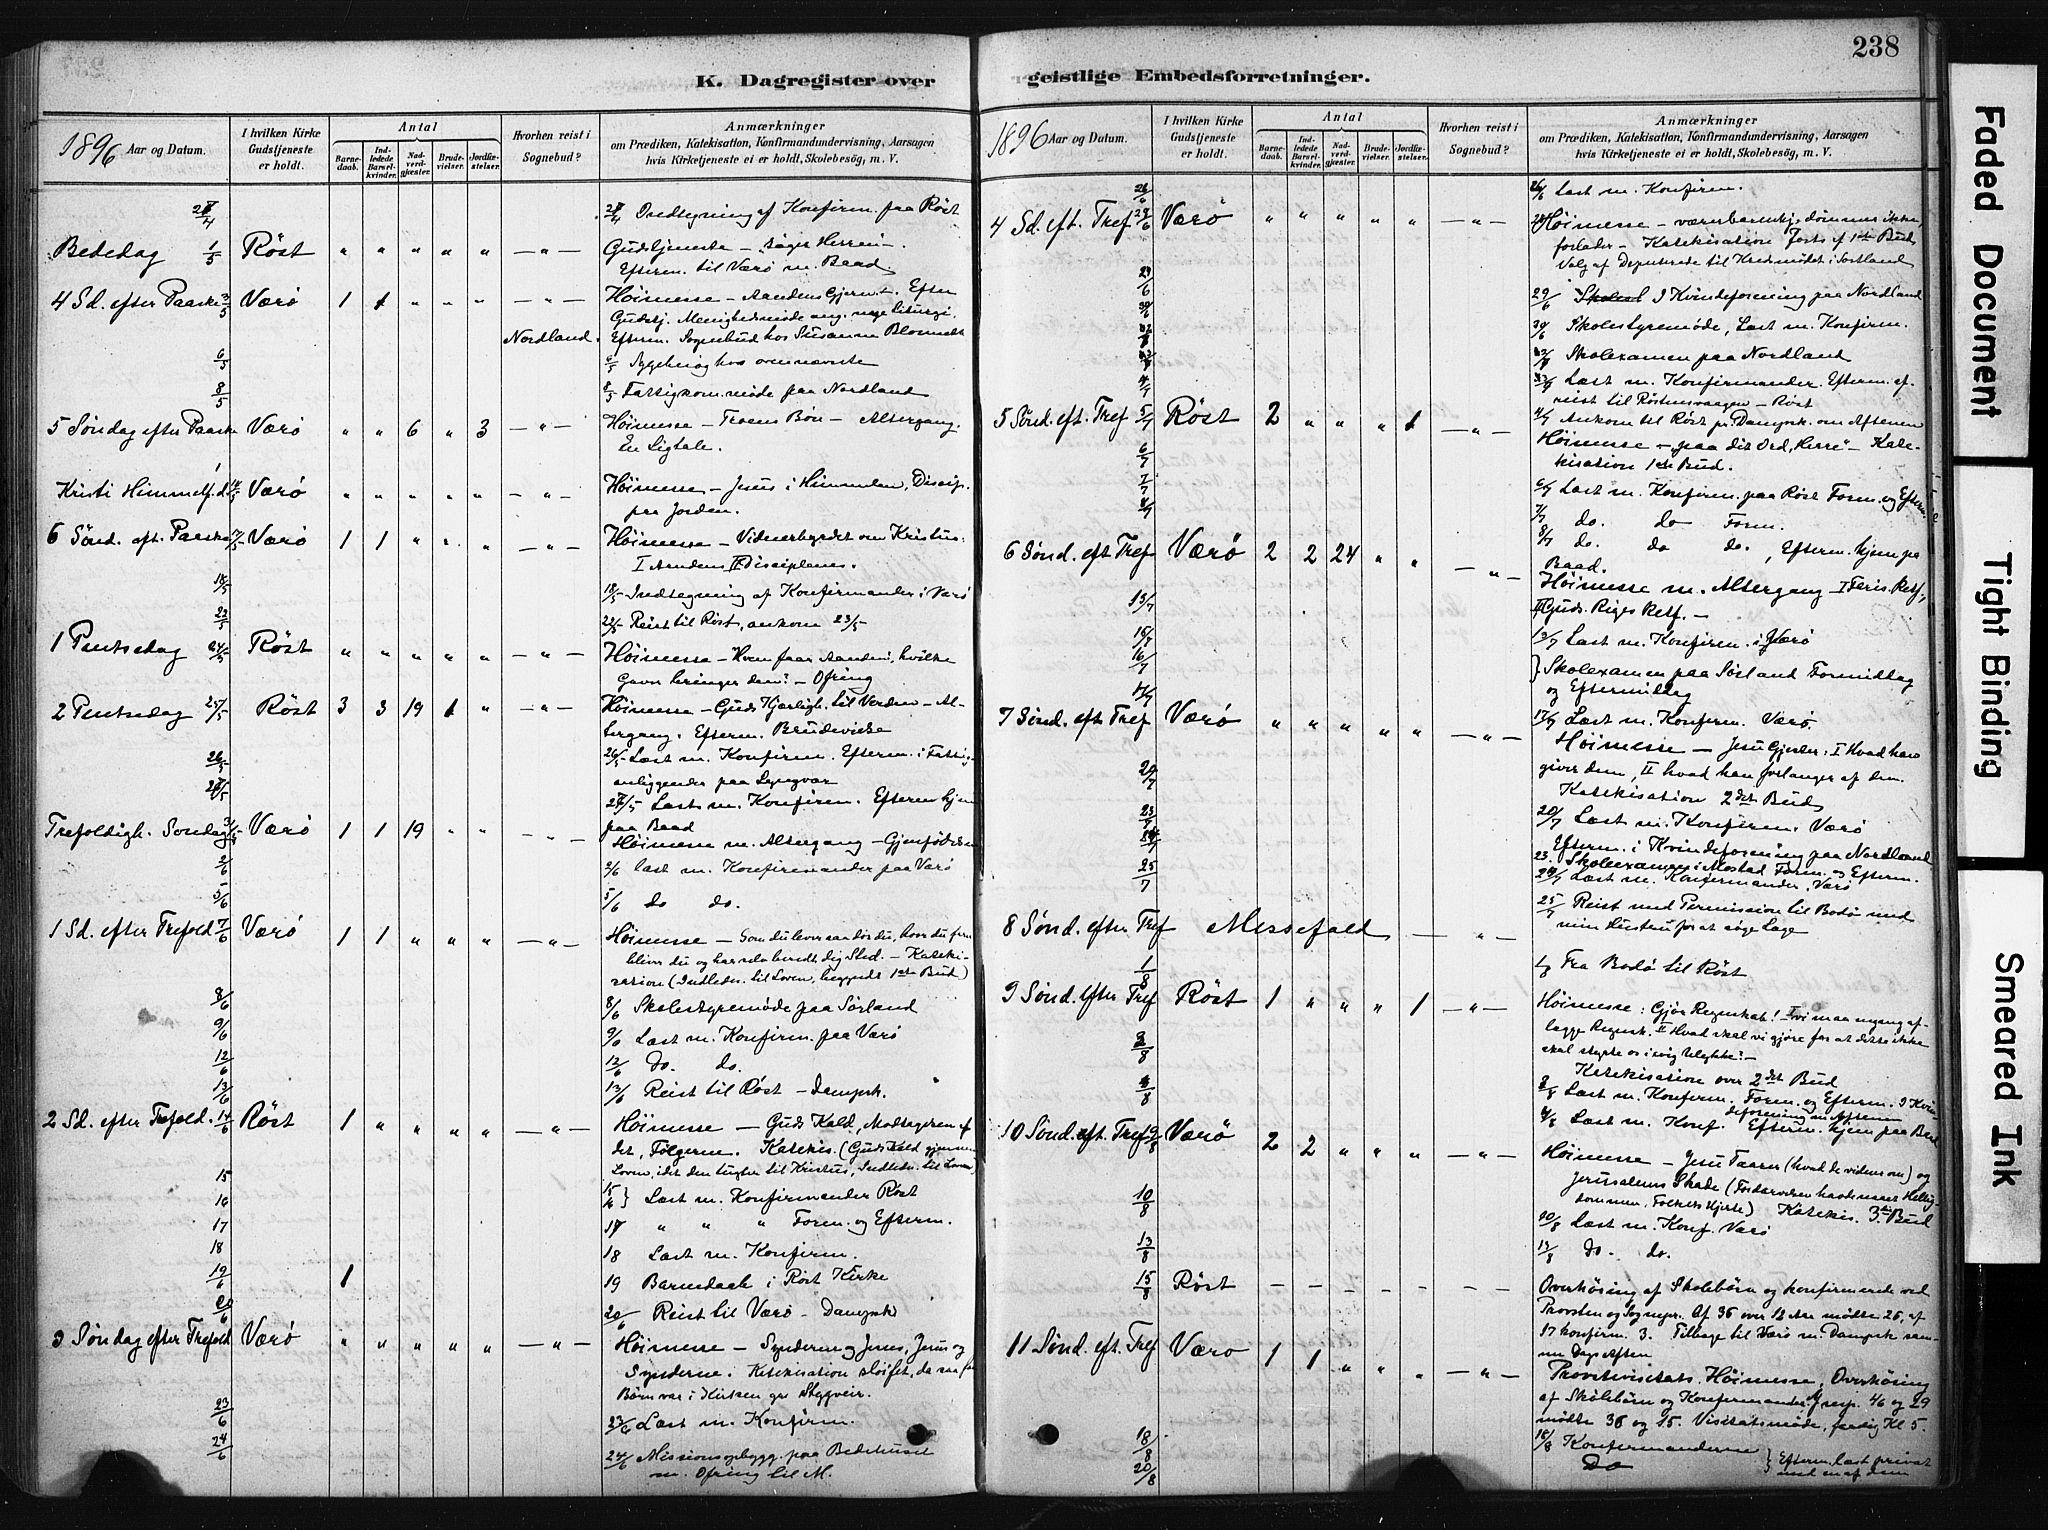 238
K. Dagregister over
geistlige Embedsforretninger.
1896 Aar og Datum.
I hvilken Kirke Gudstjeneste er holdt.
Antal
Barnedaab.
Indledede Barselkvinder.
Nadverdgjester.
Brudevielser.
Jordfæstelser.
Hvorhen reist i Sognebud?
Anmærkninger
om Prædiken, Katekisation, Konfirmandundervisning, Aarsagen
hvis Kirketjeneste ei er holdt, Skolebesøg, m. V.
28/4 Indtegning af Konfirm. paa Røst
Bededag 1/5 Røst " " " " " —"— Gudstjeneste – søger Herren –
Efterm. til Værø m. Baad
4 Sd. efter Paaske 3/5 Værø 1 1 " " " —"— Høimesse – Aandens Gjern. Efter
Gudstj. Menighedsmøde ang. nye Liturgi.
Nordland. Efterm. Sognebud hos Susanna
6/5 6/5 Sygebesøg hos ovennævnte
8/5 8/5 Fattigkom.møde paa Nordland
5 Søndag efter Paaske Værø " " 6 " 3 —"— Høimesse – Troens Bøn – Altergang.
En Ligtale.
Kristi Himmelf.d. 14/5 Værø " " " " " —"— Høimesse – Jesus i Himmelen, Discip.
paa Jorden.
6 Sønd. eft. Paaske 17/5 Værø 1 1 " " " —"— Høimesse – Vidnesbyrdet om Kristus:
I Aandens II Disciplenes.
18/5 18/5 Indtegning af Konfirmander i Værø
22/5 22/5 Reist til Røst, ankom 23/5
1 Pintsedag 24/5 Røst " " " " " —"— Høimesse – Hvem faar Aanden, hvilke
Gaver bringer den? – Ofring
2 Pintsedag 25/5 Røst 3 3 19 1 " —"— Høimesse – Guds Kjærligh. til Verden – Al-
tergang. Efterm. Brudevielse
26/5 26/5 Læst m. Konfirm. Efterm. i Fattig-
anliggender paa Lyngvær
27/5 27/5 Læst m. Konfirm. Efterm hjem
paa Baad
Trefoldigh. Søndag 31/5 Værø 1 1 19 " " —"— Høimesse m. Altergang – Gjenfødelsen
2/6 2/6 læst m. Konfirmander paa Værø
5/6 5/6 do do.
1 Sd. efter Trefold. 7/6 Værø 1 1 " " " —"— Høimesse – Som du lever saa dør du, hvor du
bliver du og har selv beredt dig Sted. – Kateki-
sation (Indledn. til Loven, begyndt 1ste Bud)
8/6 8/6 Skolestyremøde paa Sørland
9/6 9/6 Læst m. Konfirm. paa Værø
12/6 12/6 Do. do.
13/6 13/6 Reist til Røst – Dampsk.
2 Sd. efter Trefold. 14/6 Røst 1 " " " " —"— Høimesse – Guds Kald, Modtageren af
det, Følgerne. Katekis. (Guds Kald gjennem
Loven, idet den tugter til Kristus, Indledn. til Loven)
15 15
16 16 } Læst m. Konfirmander Røst
17 17 " " " Form. og Efterm.
18 18 Læst m. Konfirm.
19/6 1 19 Barnedaab i Røst Kirke
20/6 20/6 Reist til Værø – Dampsk
3 Søndag efter Trefold Værø " " " " " —"— Høimesse – Synderen og Jesus, Jesus og
Synderne. Katekisation sløifet, da
Børn var i Kirken gr Styggveir.
23/6 23/6 Læst m. Konfirm.
24/6 24/6 Missionsopbygg. paa Bedehuset
m. Ofring til M.
1896 Aar og Datum.
I hvilken Kirke Gudstjeneste er holdt.
Antal
Barnedaab.
Indledede Barselkvinder.
Nadverdgjester.
Brudevielser.
Jordfæstelser.
Hvorhen reist i Sognebud?
Anmærkninger
om Prædiken, Katekisation, Konfirmandundervisning, Aarsagen
hvis Kirketjeneste ei er holdt, Skolebesøg, m. V.
26/6 26/6 Læst m. Konfirm.
4 Sd. eft. Tref 28/6 Værø " " " " " —"— Høimesse – dømmer ikke,
forlader – Katekisation Forts af 1ste Bud
Valg af Deputerede til Kredsmødet i Sortland
29/6 29/6 I Kvindeforening paa Nordland
30/6 30/6 Skolestyremøde, Læst m. Konfirm.
Skolexamen paa Nordland
Læst m. Konfirmander. Efterm. af-
reist til Røst
4/7 4/7 Ankom til Røst pr. Dampsk. om Aftenen
5 Sønd. eft. Tref 5/7 Røst 2 " " " 1 —"— Høimesse – "paa dit Ord, Herre" – Kate-
kisation 1ste Bud.
6/7 6/7 Læst m. Konfirm. paa Røst Form. og Efterm.
7/7 7/7 do. do Form.
8/7 8/7 do. do do. , Efterm. hjem pa
Baad.
6 Sønd. eft Tref Værø 2 2 24 " " —"— Høimesse m. Altergang – I Faris. Retf.,
II Guds Riges Retf. –
13/7 13/7 Læst m. Konfirm. i Værø
15/7
16/7 } Skolexamen paa Sørland Formiddag
og Eftermiddag
17/7 17/7 Læst m. Konfirm. Værø.
7 Sønd. eft Tref Værø " " " " " —"— Høimesse – Jesu Gjester: I Hvad han
giver dem, II hvad han forlanger af dem.
Katekisation 2det Bud
20/7 20/7 Læst m. Konfirm. Værø
Efterm. i Kvindeforening paa Nordland
23/7 23. Skoleexamen i Mostad Form. og Efterm.
24/7 24/7 Læst m. Konfirmander, Værø
25/7 25/7 Reist med Permission til Bodø med
min Hustru for at søge Læge
8 Sønd. efter Tref Messefald —"—
1/8 1/8 Fra Bodø til Røst
9 Sønd. efter Tref Røst 1 " " " 1 —"— Høimesse: Gjør Regnskab! – I vi maa
lægge Regnsk. II Hvad skal vi gjøre for at dette ikke
skal styrte os i evig Ulykke? –
Katekisation over 2det Bud
3/8 3/8 Læst m. Konfirm. Form. og Efterm. I Kvin-
deforening om Aftenen
4/8 4/8 Læst m. Konf. Efterm. hjem paa
10 Sønd. eft. Tref 9/8 Værø 2 2 " " " —"— Høimesse – Jesu Taarer (hvad de vidne om) og
Jerusalems Skade (Fordærvelsen havde naaet Hellig-
dommen, Folkets Hjerte) Katekis. 3die Bud
10/8 10/8 Læst m. Konf. Værø
13/8 13/8 do. do.
15/8 Røst – – – – – – Overhøring af Skolebørn og konfirmerede ved
Provsten og Sognepr. Af 36 over 12 Aar mødte 26, af
17 konfirm. 3. Tilbage til Værø m. Dampsk sam-
me Dags Aften
11 Sønd. eft. Tref Værø 1 1 " " " —"— Provstivisitats. Høimesse, Overhøring
af Skolebørn og Konfirmander, resp. 46 og 29
mødte 36 og 15. Visitatsmøde, færdig Kl 5.
18/8 18/8 Konfirmanderne
20/8 Do } Efterm. læst privat
med en af dem
Faded Document
Tight Binding
Smeared Ink